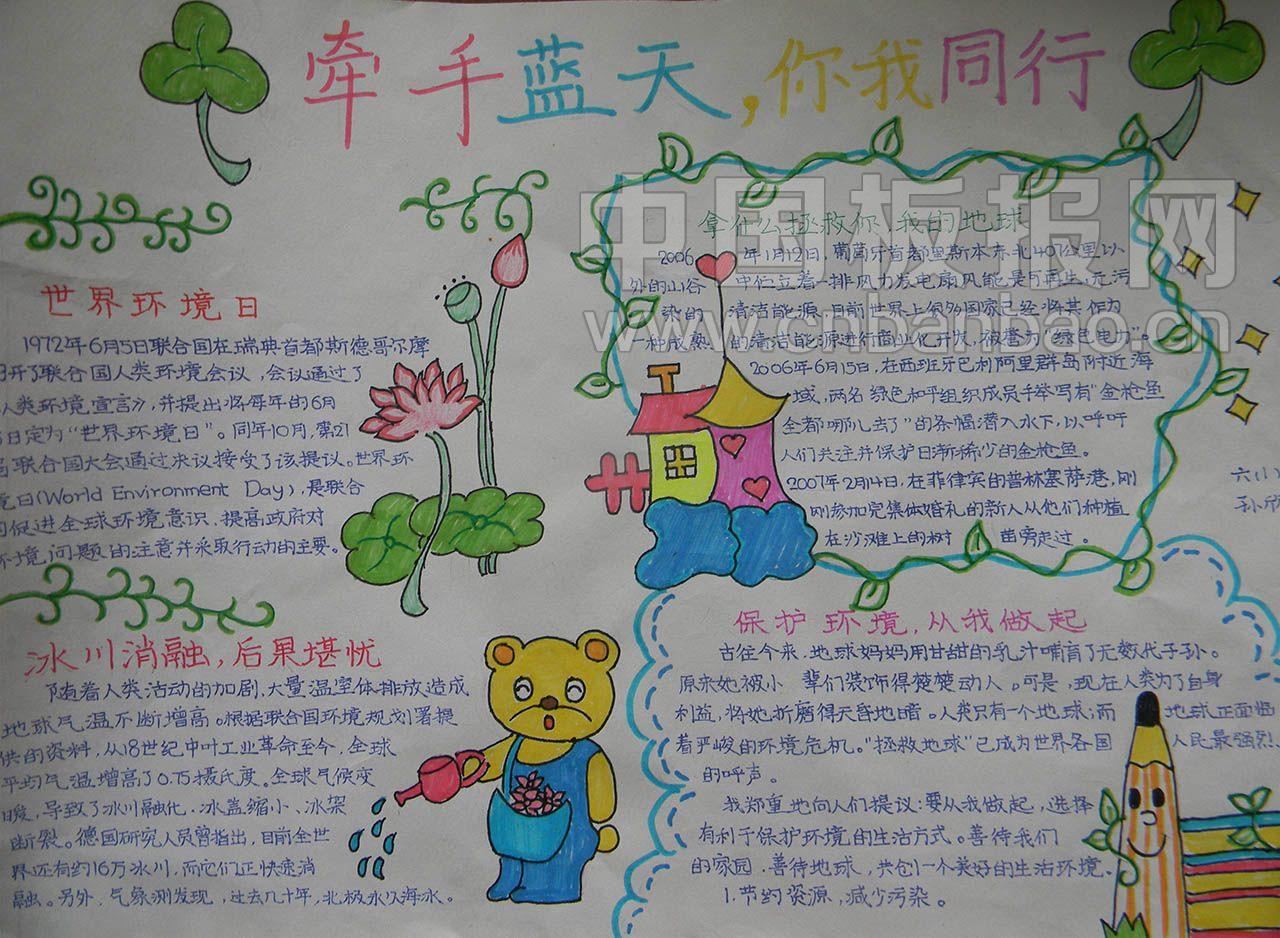 牵手蓝天,你我同行
世界环境日
1972年6月5日联合国在瑞典首都斯德哥尔摩
开了联合国人类环境会议,会议通过了
人类环境宣言》,并提出将每年的6月
日定为“世界环境日”。同年10月,第21
联合国大会通过决议接受了该提议。世界环
日(World Environment Day),是联合
促进全球环境意识、提高政府对
环境问题的注意并采取行动的主要。
冰川消融,后果堪忧
随着人类活动的加剧,大量温室体排放造成
地球气温不断增高。根据联合国环境规划署提
供的资料,从18世纪中叶工业革命至今,全球
平均气温增高了0.75摄氏度。全球气候变
暖,导致了冰川融化、冰盖缩小、冰架
断裂。德国研究人员曾指出,目前全世
界还有约16万冰川,而它们正快速消
融。另外,气象测发现,过去几十年,北极永久海冰。
拿什么拯救你,我的地球
2006年1月12日,葡萄牙首都里斯本东北407公里以
外的山谷中伫立着一排风力发电扇风能是可再生、无污
染的清洁能源,目前世界上很多国家已经将其作为
一种成熟的清洁能源进行商业化开发,被誉为“绿色电力”
2006年6月15日,在西班牙巴利阿里群岛附近海
域,两名绿色和平组织成员手举写有“金枪鱼
全都哪儿去了”的条幅潜入水下,以呼吁
人们关注并保护日渐稀少的金枪鱼。
2007年2月14日,在菲律宾的普林塞萨港,刚
刚参加完集体婚礼的新人从他们种植
在沙滩上的树苗旁走过。
六(1)
孙欣
保护环境,从我做起
古往今来,地球妈妈用甘甜的乳汁哺育了无数代子孙。
原来她被小辈们装饰得楚楚动人。可是,现在人类为了自身
利益,将她折磨得天昏地暗。人类只有一个地球;而地球正面临
着严峻的环境危机。“拯救地球”已成为世界各国人民最强烈
的呼声。
我郑重地向人们提议:要从我做起,选择
有利于保护环境的生活方式。善待我们
的家园,善待地球,共创一个美好的生活环境。
1.节约资源,减少污染。
中国板报网
www.cnbanbao.cn